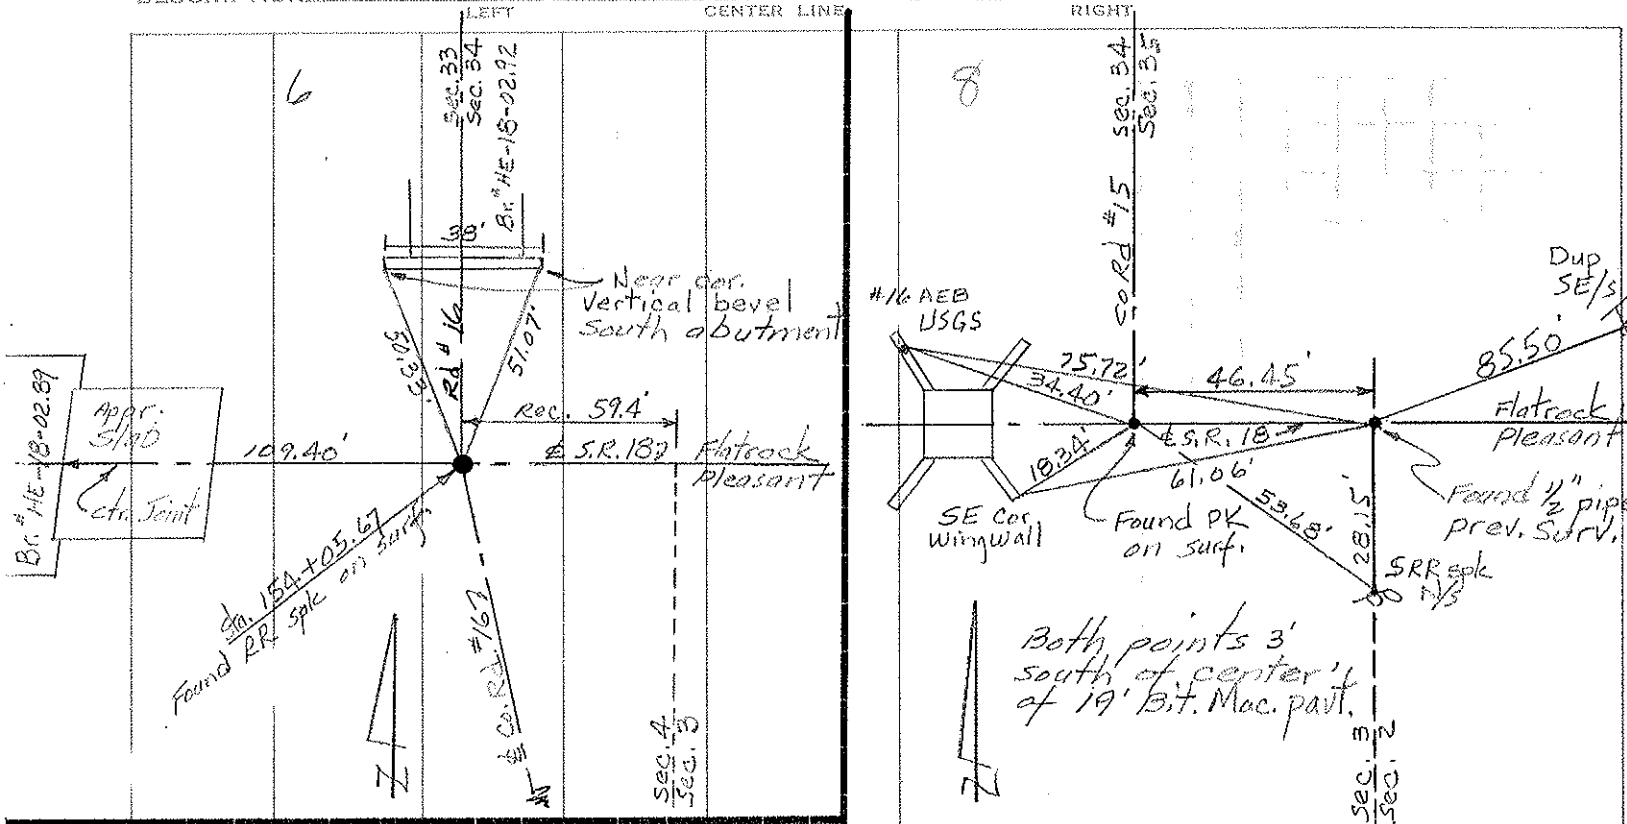 LEFT
CENTER LINE
RIGHT
6
Sec. 33
Sec. 34
Br.# HE-18-02.92
38'
Near cor.
Vertical bevel
South abutment
50.33'
Rd # 16
51.07'
Rec. 59.4'
Br.# HE-18-02.89
Appr.
Slab
Ctr. Joint
109.40'
℄ S.R. 18
Flatrock
Pleasant
Sta. 154+05.67
Found RR spk on surf.
℄ Co. Rd. #16
Sec. 4
Sec. 3
Z
8
Sec. 34
Sec. 35
Co Rd #15
#16 AEB
USGS
75.72'
34.40'
46.45'
Dup
SE/S
85.50'
℄ S.R. 18
Flatrock
Pleasant
18.34'
61.06'
53.68'
28.15'
SE Cor.
Wingwall
Found PK
on surf.
Found 1/2" pipe
prev. Surv.
SRR spk
N/S
Both points 3'
south of center
of 19' Bit. Mac. pavt.
Sec. 3
Sec. 2
Z